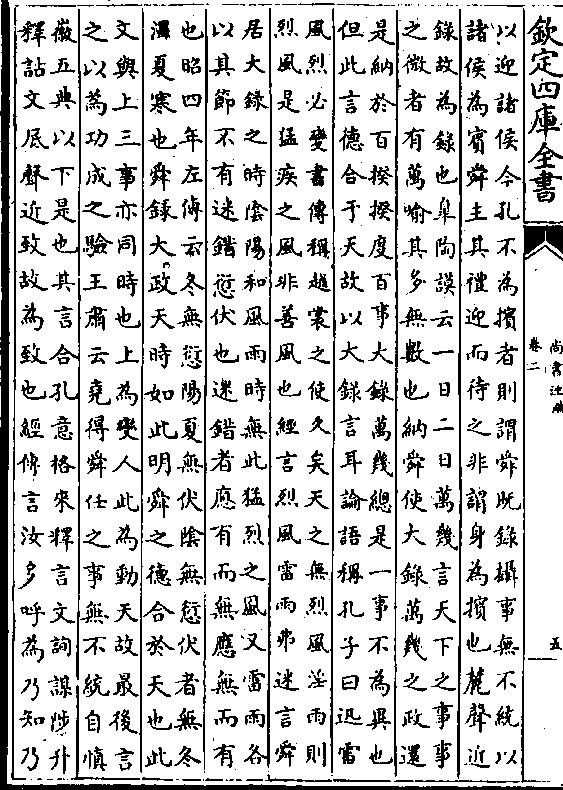 欽定四庫全書
尚書注疏
卷二
五
以迎諸侯今孔不為擯者則謂舜既錄攝事無不統以
諸侯為賓舜主其禮迎而待之非謂身為擯也麓聲近
錄故為錄也臯陶謨云一日二日萬幾言天下之事事
之微者有萬喻其多無數也納舜使大錄萬幾之政還
是納於百揆揆度百事大錄萬幾總是一事不為異也
但此言德合于天故以大錄言耳論語稱孔子曰迅雷
風烈必變書傳稱越裳之使久矣天之無烈風淫雨則
烈風是猛疾之風非善風也經言烈風雷雨弗迷言舜
居大錄之時陰陽和風雨時無此猛烈之風又雷雨各
以其節不有迷錯愆伏也迷錯者應有而無應無而有
也昭四年左傳云冬無愆陽夏無伏陰無愆伏者無冬
溫夏寒也舜錄大政天時如此明舜之德合於天也此
文與上三事亦同時也上為變人此為動天故最後言
之以為功成之驗王肅云堯得舜任之事無不統自慎
徽五典以下是也其言合孔意格來釋言文詢謀陟升
釋詁文厎聲近致故為致也經傳言汝多呼為乃知乃